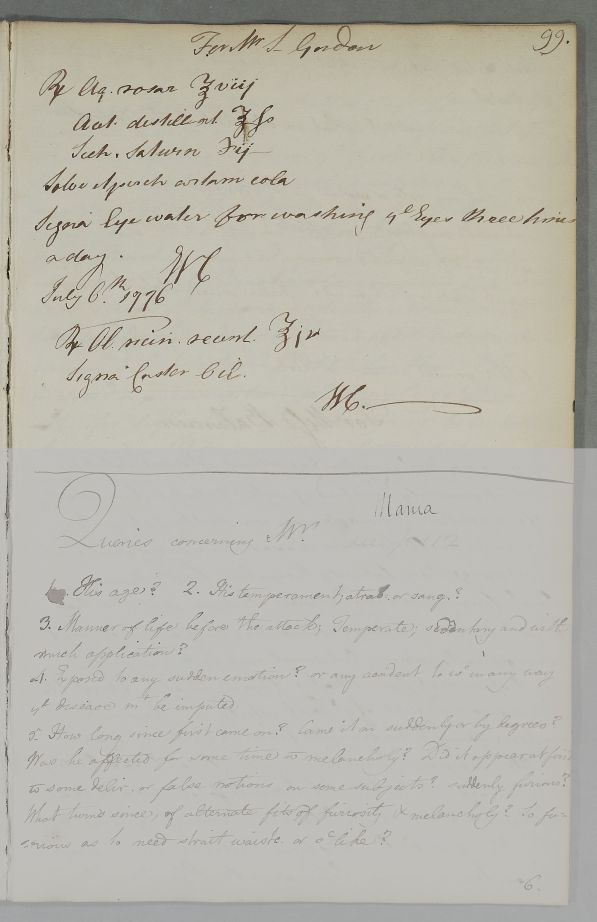 For Mr S Gordon
99.
Rx Aq. rosar ℥viij
Acet. distillat ℥ſs
Sach. Saturn ʒij
Solve et per chartam cola
Signa Eye water for washing ye Eyes three times
a day. WC
July 6.th 1776
Rx Ol. ricin. recent. ℥iv
Signa Castor Oil.
WC.
Mania
Queries concerning Mr
1. His age? 2. His temperament, atrab. or sang.?
3. Manner of life before the attack; Temperate; sedentary and with
much application?
4. Exposed to any sudden emotion? or any accident to wh in any way
ye disease mt be imputed
5. How long since first came on? Came it on suddenly or by degrees?
Was he affected for some time wt melancholy? Did it appear at first
wt some delir. or false notions on some subjects? suddenly furious?
What turns since, of alternate fits of furiosity & melancholy? So fu-
-rious as to need strait waistc. or ye like?
6.